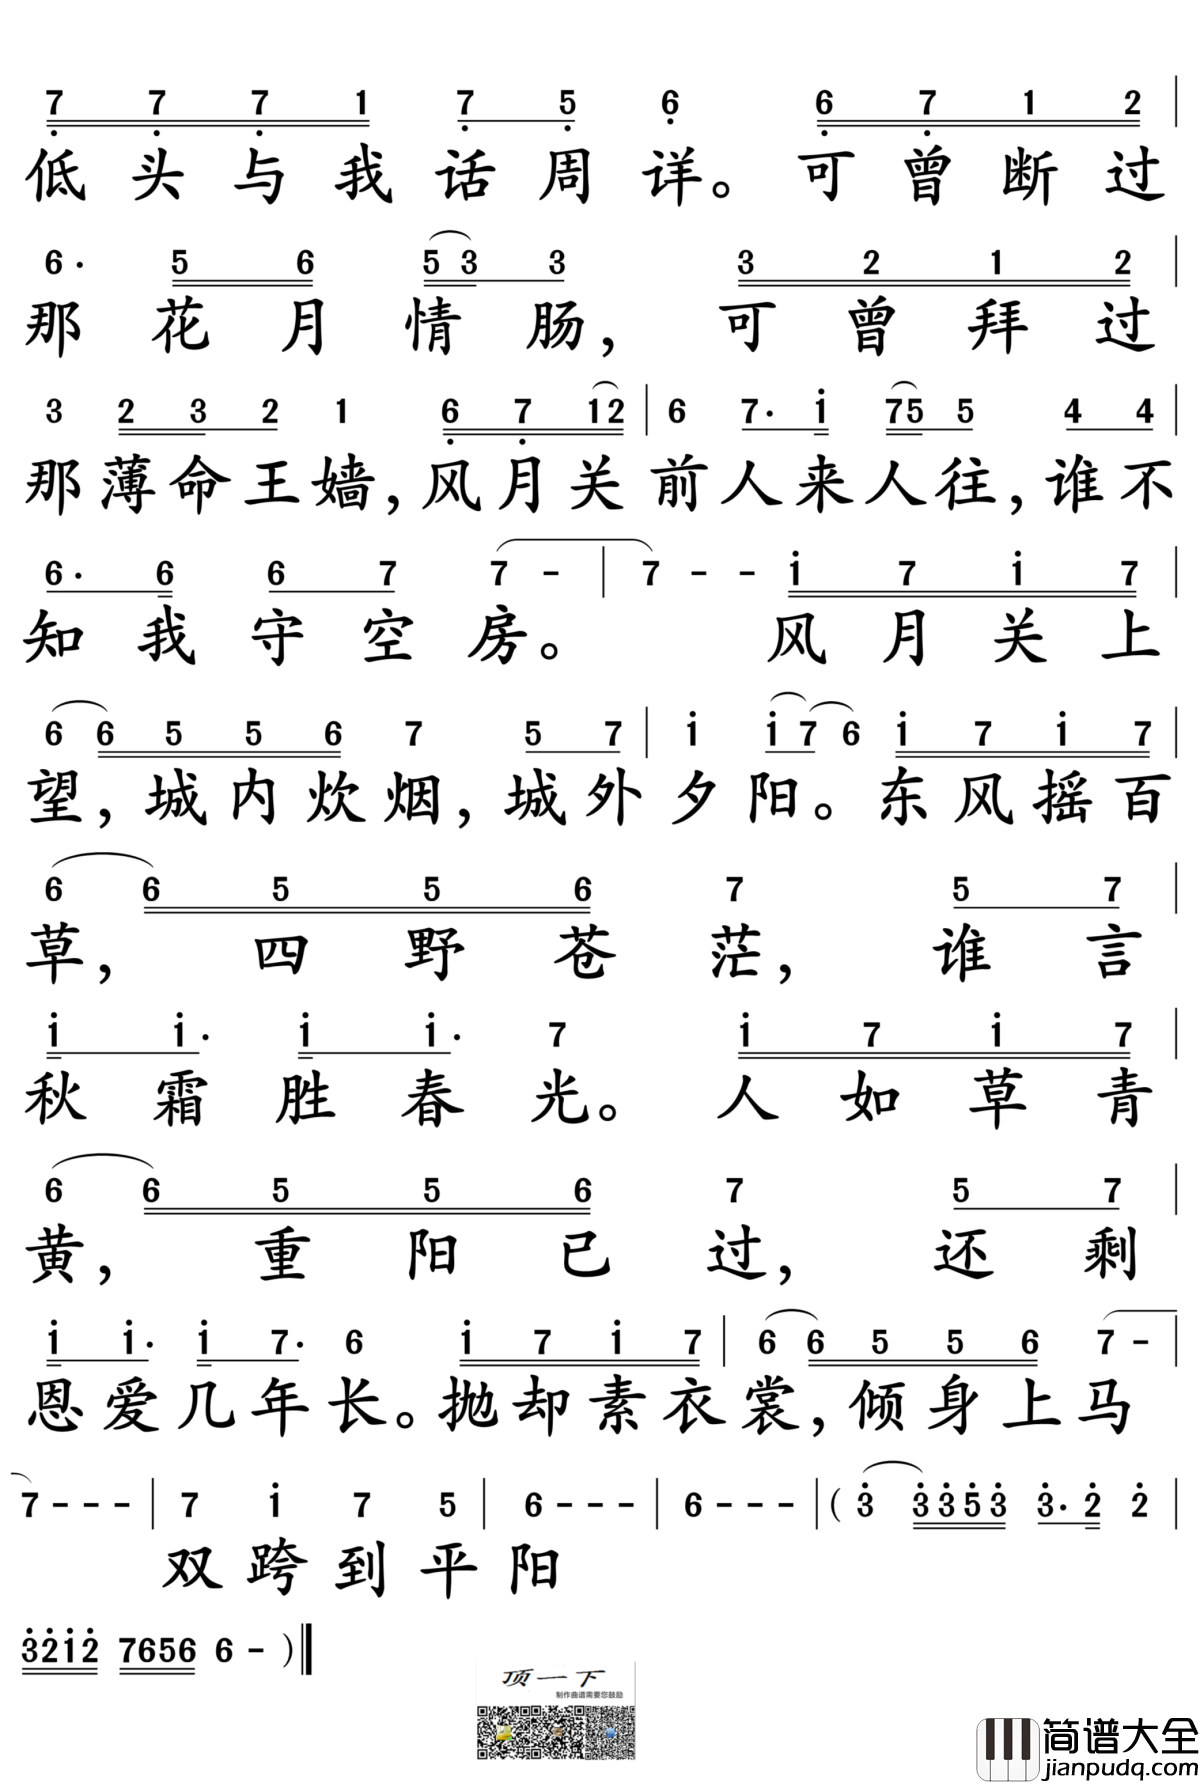 7 7 7 1 7 5 6 6 7 1 2
低头与我话周详。可曾断过
6· 5 6 5 3 3 3 2 1 2
那花月情肠，可曾拜过
3 2 3 2 1 6 7 1 2 | 6 7· i 7 5 5 4 4
那薄命王嫱，风月关前人来人往，谁不
6· 6 6 7 7 - | 7 - - i 7 i 7
知我守空房。风月关上
6 6 5 5 6 7 5 7 | i i 7 6 i 7 i 7
望，城内炊烟，城外夕阳。东风摇百
6 6 5 5 6 7 5 7
草，四野苍茫，谁言
i i· i i· 7 i 7 i 7
秋霜胜春光。人如草青
6 6 5 5 6 7 5 7
黄，重阳已过，还剩
i i· i 7· 6 i 7 i 7 | 6 6 5 5 6 7 -
恩爱几年长。抛却素衣裳，倾身上马
7 - - - | 7 i 7 5 | 6 - - - | 6 - - - | ( 3 3 3 5 3 3· 2 2
双跨到平阳
3 2 1 2 7 6 5 6 6 - )
顶一下
制作曲谱需要您鼓励
简谱大全
jianpudq.com